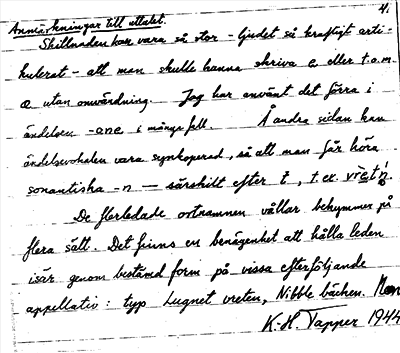 4.
Anmärkningar till uttalet.
Skillnaden kan vara så stor - ljudet så kraftigt arti-
kulerat - att man skulle kunna skriva e eller t.o.m.
æ utan omvärdning. Jag har använt det förra i
ändelsen -ene i många fall. Å andra sidan kan
ändelsevokalen vara synkoperad, så att man får höra
sonantiska -n — särskilt efter t, t ex.
De flerledade ortnamnen vållar bekymmer på
flera sätt. Det finns en benägenhet att hålla leden
isär genom bestämd form på vissa efterföljande
appellativ: typ Lugnet vreten, Nibble bäcken. Men
K.-H. Tapper 1944